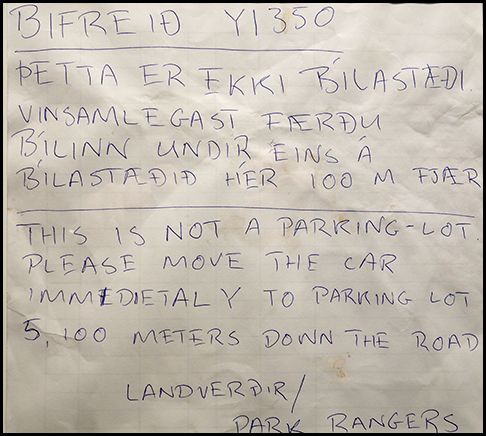 BIFREIÐ YI350
ÞETTA ER EKKI BÍLASTÆÐI.
VINSAMLEGAST FÆRÐU
BÍLINN UNDIR EINS Á
BÍLASTÆÐIÐ HÉR 100 M FJÆR
THIS IS NOT A PARKING-LOT.
PLEASE MOVE THE CAR
IMMEDIETALY TO PARKING LOT
5, 100 METERS DOWN THE ROAD
LANDVERÐIR/
PARK RANGERS